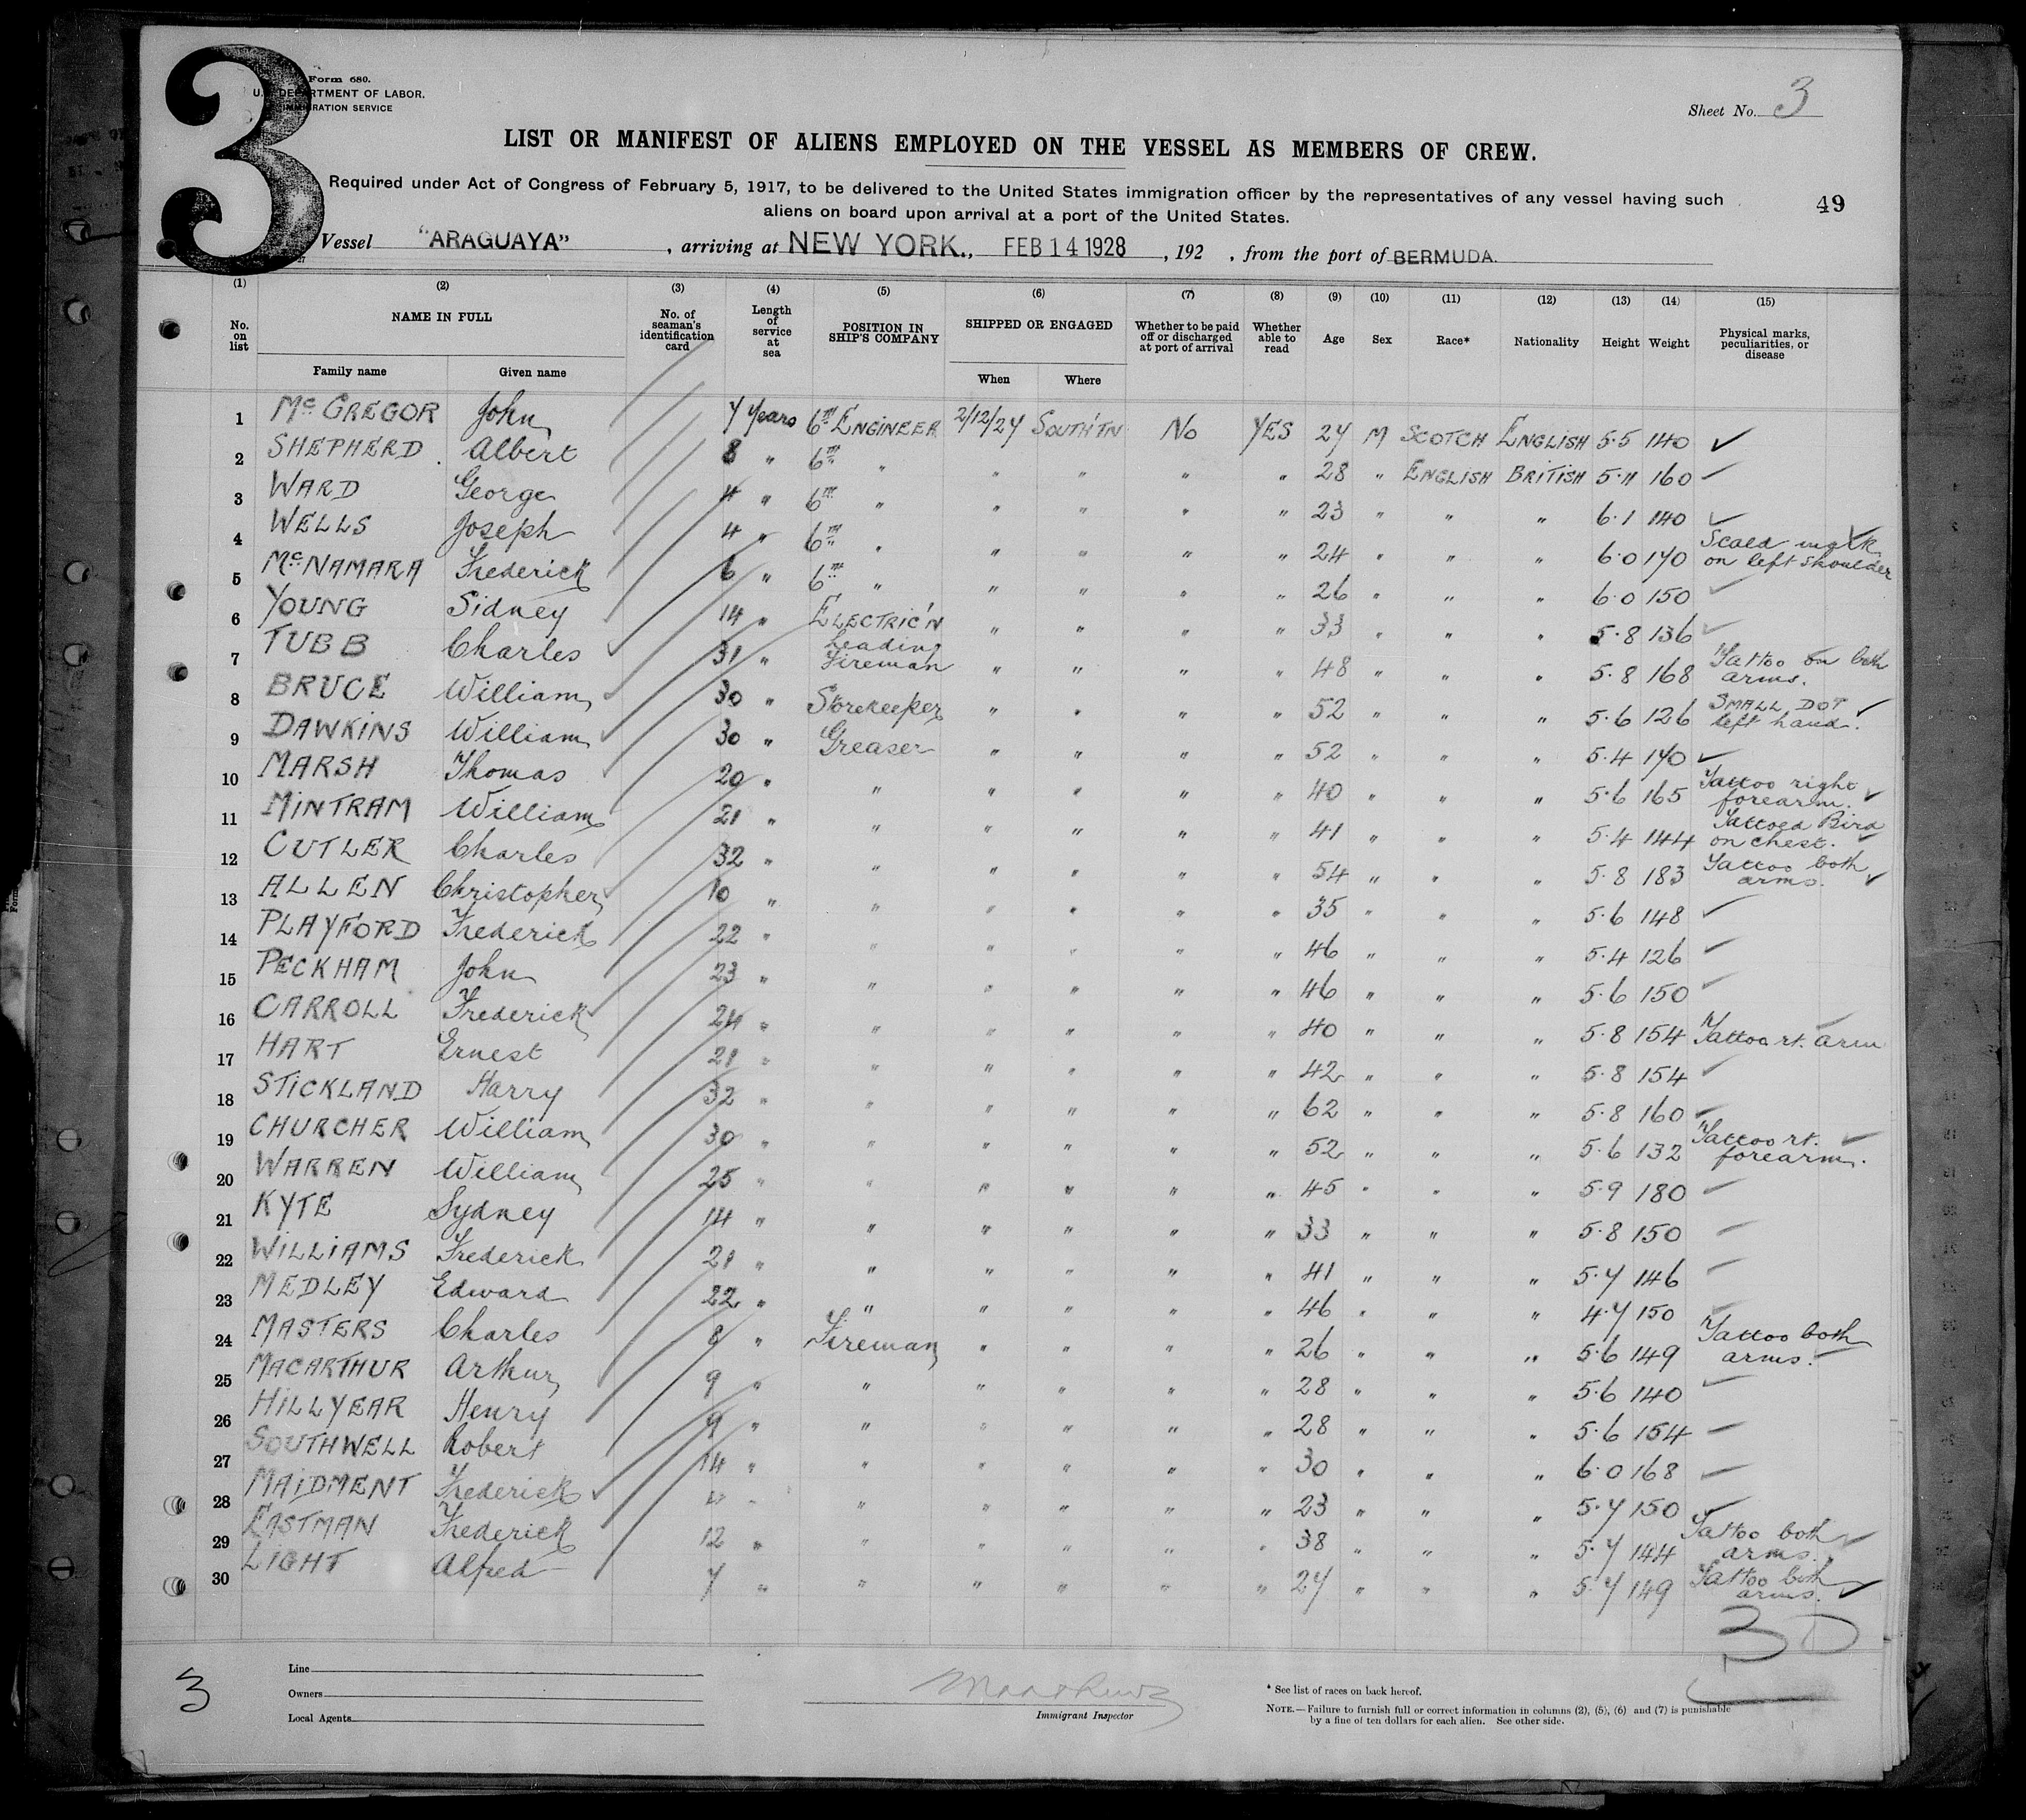 3
Form 680.
U. S. DEPARTMENT OF LABOR.
IMMIGRATION SERVICE
Sheet No. 3
LIST OR MANIFEST OF ALIENS EMPLOYED ON THE VESSEL AS MEMBERS OF CREW.
Required under Act of Congress of February 5, 1917, to be delivered to the United States immigration officer by the representatives of any vessel having such
aliens on board upon arrival at a port of the United States.
49
Vessel "ARAGUAYA", arriving at NEW YORK., FEB 14 1928, 192 , from the port of BERMUDA.
(1) (2) (3) (4) (5) (6) (7) (8) (9) (10) (11) (12) (13) (14) (15)
No. on list NAME IN FULL Family name Given name No. of seaman's identification card Length of service at sea POSITION IN SHIP'S COMPANY SHIPPED OR ENGAGED When Where Whether to be paid off or discharged at port of arrival Whether able to read Age Sex Race* Nationality Height Weight Physical marks, peculiarities, or disease
1 McGREGOR John 7 Years 6TH ENGINEER 2/12/27 SOUTH'TN No YES 27 M SCOTCH ENGLISH 5.5 140 ✓
2 SHEPHERD Albert 8 " 6TH " " " " " 28 " ENGLISH BRITISH 5.11 160 ✓
3 WARD George 4 " 6TH " " " " " 23 " " " 6.1 140 ✓
4 WELLS Joseph 4 " 6TH " " " " " 24 " " " 6.0 170 Scald mark on left shoulder ✓
5 McNAMARA Frederick 6 " 6TH " " " " " 26 " " " 6.0 150 ✓
6 YOUNG Sidney 14 " ELECTRIC'N " " " " 33 " " " 5.8 136 ✓
7 TUBB Charles 31 " Leading Fireman " " " " 48 " " " 5.8 168 Tattoo on both arms.
8 BRUCE William 30 " Storekeeper " " " " 52 " " " 5.6 126 SMALL DOT left hand. ✓
9 DAWKINS William 30 " Greaser " " " " 52 " " " 5.4 170 ✓
10 MARSH Thomas 20 " " " " " " 40 " " " 5.6 165 Tattoo right forearm. ✓
11 MINTRAM William 21 " " " " " " 41 " " " 5.4 144 Tattoed Bird on chest. ✓
12 CUTLER Charles 32 " " " " " " 54 " " " 5.8 183 Tattoo both arms. ✓
13 ALLEN Christopher 10 " " " " " " 35 " " " 5.6 148 ✓
14 PLAYFORD Frederick 22 " " " " " " 46 " " " 5.4 126 ✓
15 PECKHAM John 23 " " " " " " 46 " " " 5.6 150 ✓
16 CARROLL Frederick 24 " " " " " " 40 " " " 5.8 154 Tattoo rt. arm
17 HART Ernest 21 " " " " " " 42 " " " 5.8 154 ✓
18 STICKLAND Harry 32 " " " " " " 62 " " " 5.8 160 ✓
19 CHURCHER William 30 " " " " " " 52 " " " 5.6 132 Tattoo rt. forearm. ✓
20 WARREN William 25 " " " " " " 45 " " " 5.9 180 ✓
21 KYTE Sydney 14 " " " " " " 33 " " " 5.8 150 ✓
22 WILLIAMS Frederick 21 " " " " " " 41 " " " 5.7 146 ✓
23 MEDLEY Edward 22 " " " " " " 46 " " " 4.7 150 ✓
24 MASTERS Charles 8 " Fireman " " " " 26 " " " 5.6 149 Tattoo both arms. ✓
25 MACARTHUR Arthur 9 " " " " " " 28 " " " 5.6 140 ✓
26 HILLYEAR Henry 9 " " " " " " 28 " " " 5.6 154 ✓
27 SOUTHWELL Robert 14 " " " " " " 30 " " " 6.0 168 ✓
28 MAIDMENT Frederick " " " " " " 23 " " " 5.7 150 ✓
29 EASTMAN Frederick 12 " " " " " " 38 " " " 5.7 144 Tattoo both arms. ✓
30 LIGHT Alfred 7 " " " " " " 27 " " " 5.7 149 Tattoo both arms. ✓
30
3
Line
Owners
Local Agents
Immigrant Inspector
* See list of races on back hereof.
NOTE.—Failure to furnish full or correct information in columns (2), (5), (6) and (7) is punishable
by a fine of ten dollars for each alien. See other side.